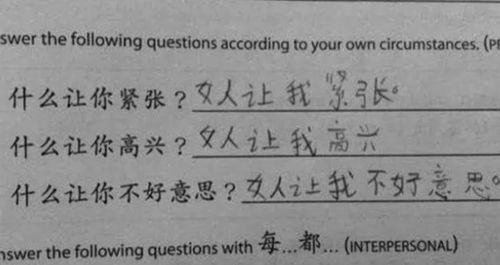 swer the following questions according to your own circumstances. (P
什么让你紧张？女人让我紧张。
什么让你高兴？女人让我高兴
什么让你不好意思？女人让我不好意思。
nswer the following questions with 每...都... (INTERPERSONAL)